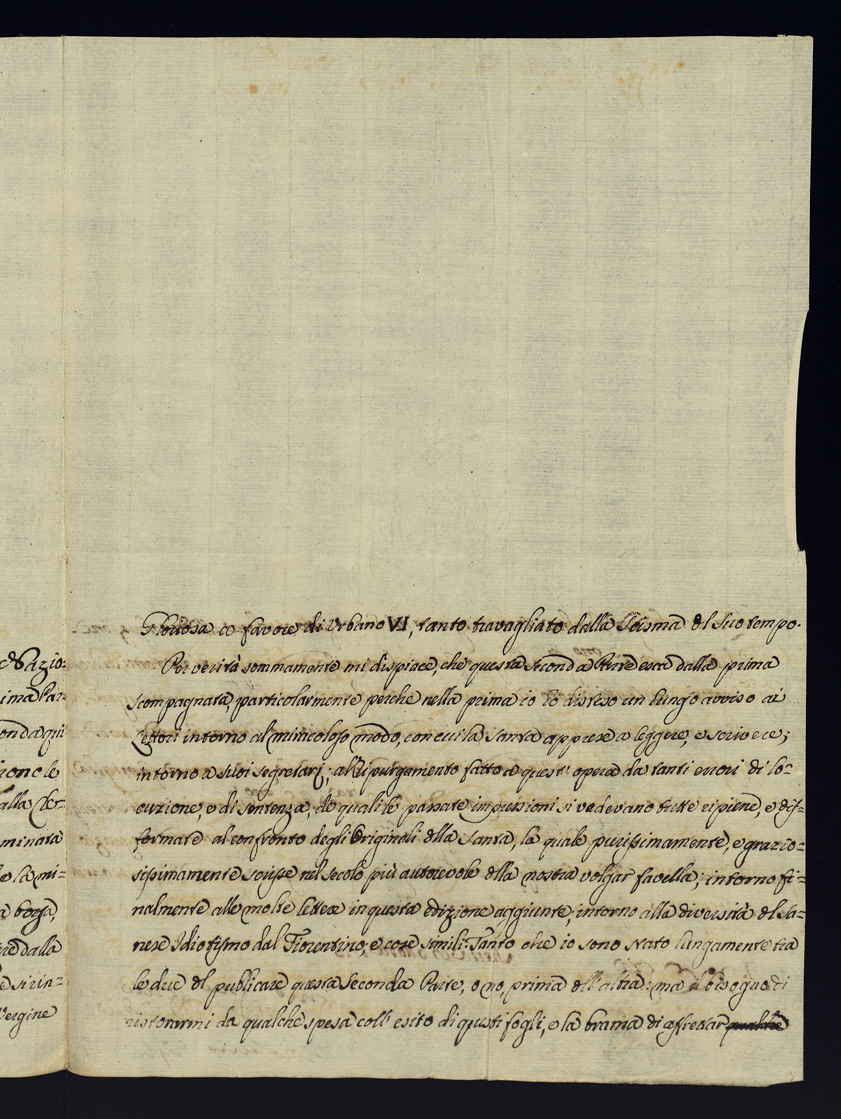 cebazio=
ima Par=
onda qui
ione le
alla Cer=
minata
e la mi=
a bozza,
ne dalla
e si rin=
Vergine
Gloriosa in favore di Urbano VI, tanto travagliato dalla Scisma del suo tempo.
Per verità sommamente mi dispiace, che questa seconda Parte esca dalla prima
scompagnata, particolarmente perche nella prima io ò disteso un lungo avviso ai
Lettori intorno al miracoloso modo, con cui la Santa apprese a leggere, e scrivere;
intorno a suoi segretarj; al ripurgamento fatto a quest' opera da tanti errori di lo=
cuzione, e di sentenza, de quali le passate impressioni si vedevano tutte ripiene, e dif=
formate al confronto degli Originali della Santa, la quale purissimamente, e grazio=
sissimamente scrisse nel secolo più autorevole della nostra volgar favella; intorno fi=
nalmente alle molte lettere in questa edizione aggiunte, intorno alla diversità del Sa=
nese Idiotismo dal Fiorentino, e cose simili: Tanto che io sono stato lungamente tra
le due del publicare questa Seconda Parte, o no, prima dell'altra: ma il bisogno di
ristorarmi da qualche spesa coll' esito di questi fogli, e la brama di affrettar qualche